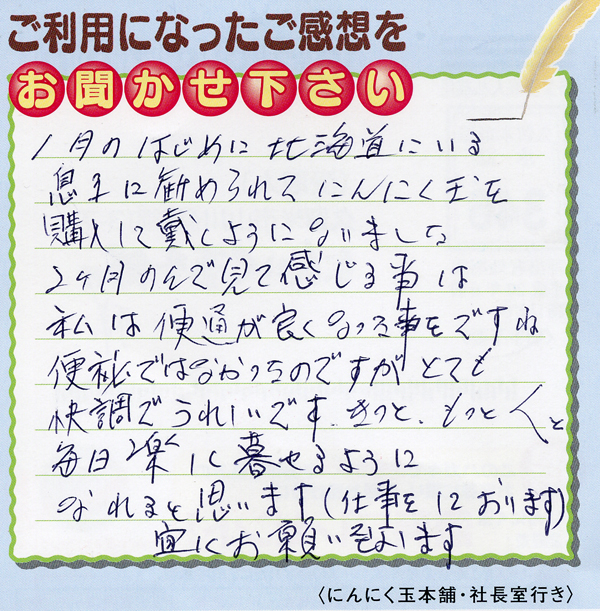 ご利用になったご感想を
お聞かせ下さい
1月のはじめに北海道にいる
息子に勧められてにんにく玉を
購入して戴くようになりました
2ヶ月のんで見て感じる事は
私は便通が良くなった事をですね
便秘ではなかったのですがとても
快調でうれしいです.きっと、もっと
毎日楽に暮せるように
なれると思います(仕事をしております)
宜しくお願い致します
〈にんにく玉本舗・社長室行き〉